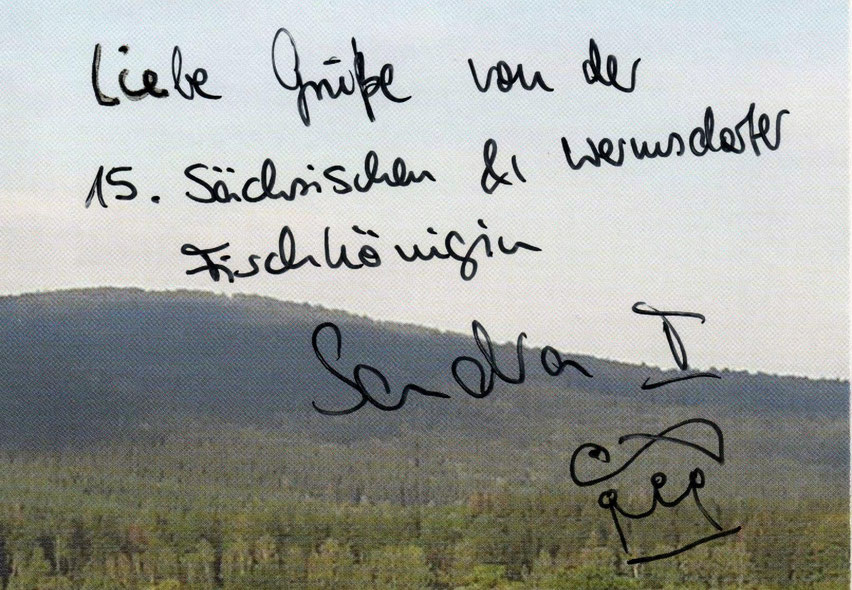 Liebe Grüße von der
15. Sächsischen & Wermsdorfer
Fischkönigin
Sandra I